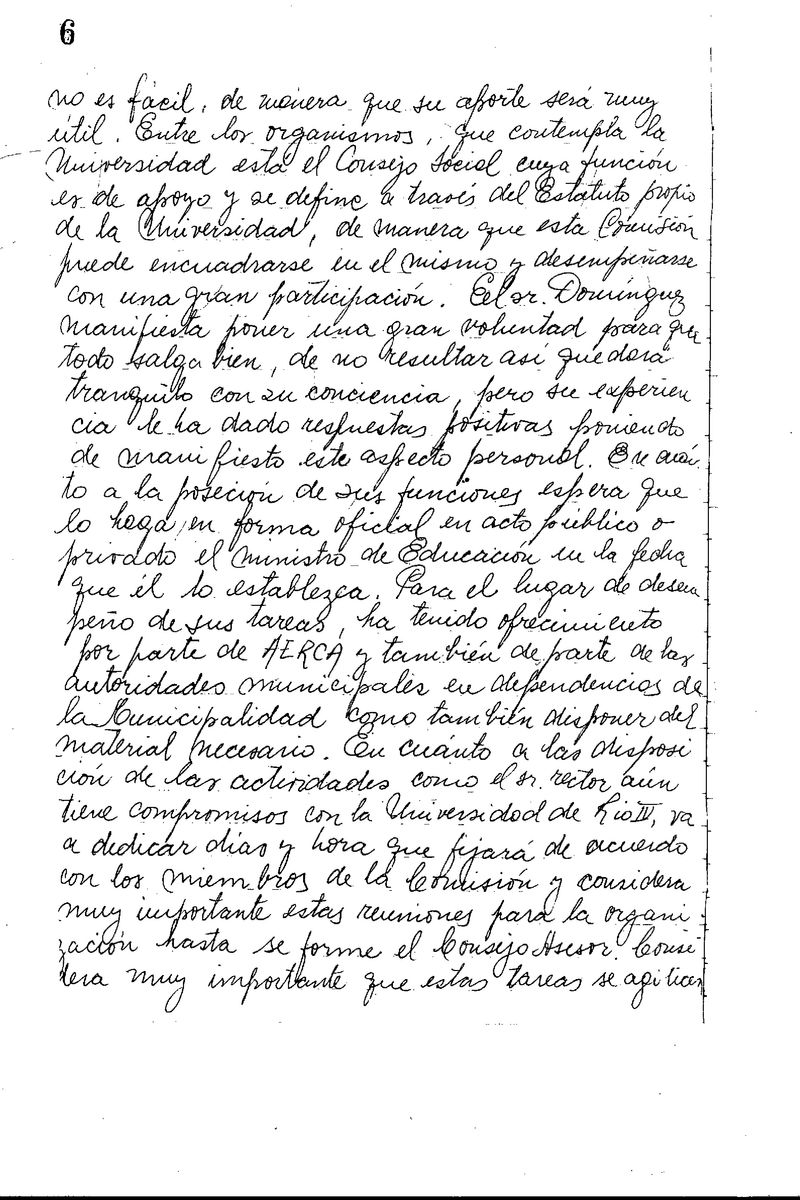 6
no es fácil, de manera que su aporte será muy
útil. Entre los organismos, que contempla la
Universidad está el Consejo Social cuya función
es de apoyo y se define a través del Estatuto propio
de la Universidad, de manera que esta Comisión
puede encuadrarse en el mismo y desempeñarse
con una gran participación. El sr. Domínguez
manifiesta poner una gran voluntad para que
todo salga bien, de no resultar así quedará
tranquilo con su conciencia, pero su experien
cia le ha dado respuestas positivas poniendo
de manifiesto este aspecto personal. En cuán
to a la posección de sus funciones espera que
lo haga, en forma oficial en acto público o
privado el ministro de Educación en la fecha
que él lo establezca. Para el lugar de desem
peño de sus tareas, ha tenido ofrecimiento
por parte de AERCA y también de parte de las
autoridades municipales en dependencias de
la Municipalidad como también disponer del
material necesario. En cuánto a las disposi
ción de las actividades como el sr. rector aún
tiene compromisos con la Universidad de Río IV, va
a dedicar días y hora que fijará de acuerdo
con los miembros de la Comisión y considera
muy importante estas reuniones para la organi
zación hasta se forme el Consejo Asesor. Consi
dera muy importante que estas tareas se agilicen